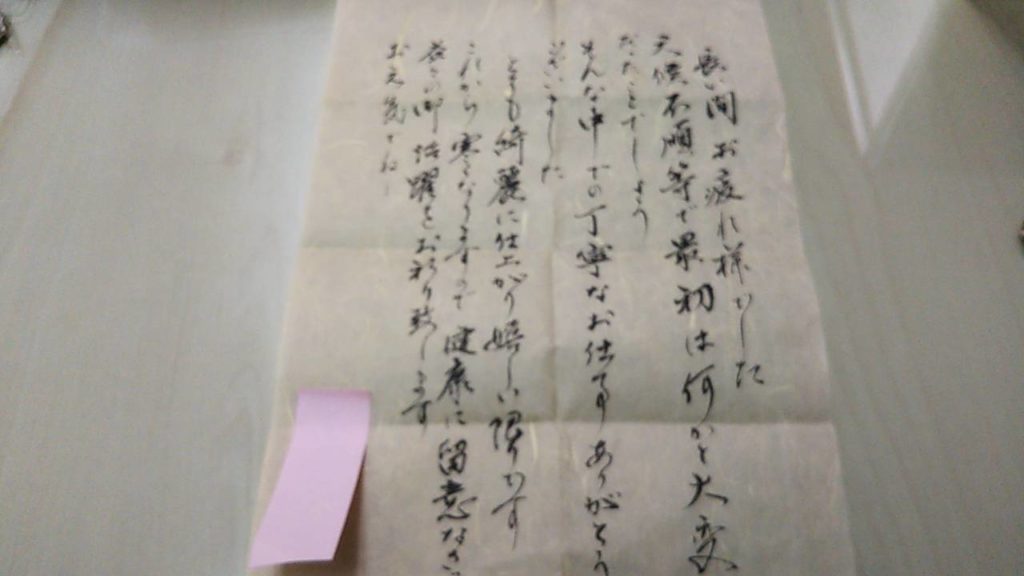 長い間お疲れ様でした
天候不順等で最初は何かと大変
だったことでしょう
そんな中での丁寧なお仕事ありがとう
ございました
とても綺麗に仕上がり嬉しい限りです
これから寒くなりますので健康に留意なさい
益々の御活躍をお祈り致します
お元気でねー